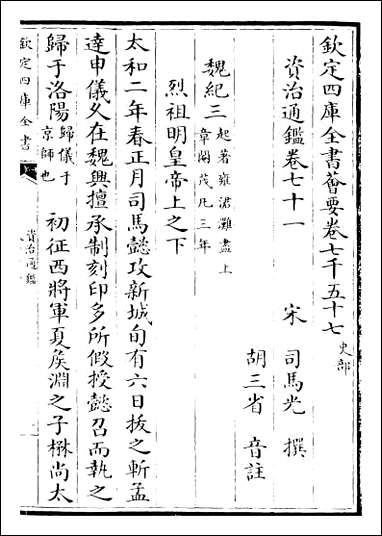 欽定四庫全書薈要卷七千五十七 史部
資治通鑑卷七十一
宋 司馬光 撰
胡三省 音註
魏紀三 起著雍涒灘盡上章閹茂凡三年
烈祖明皇帝上之下
太和二年春正月司馬懿攻新城旬有六日拔之斬孟
達申儀久在魏興擅承制刻印多所假授懿召而執之
歸于洛陽 歸儀于京師也 初征西將軍夏侯淵之子楙尚太
欽定四庫全書
資治通鑑